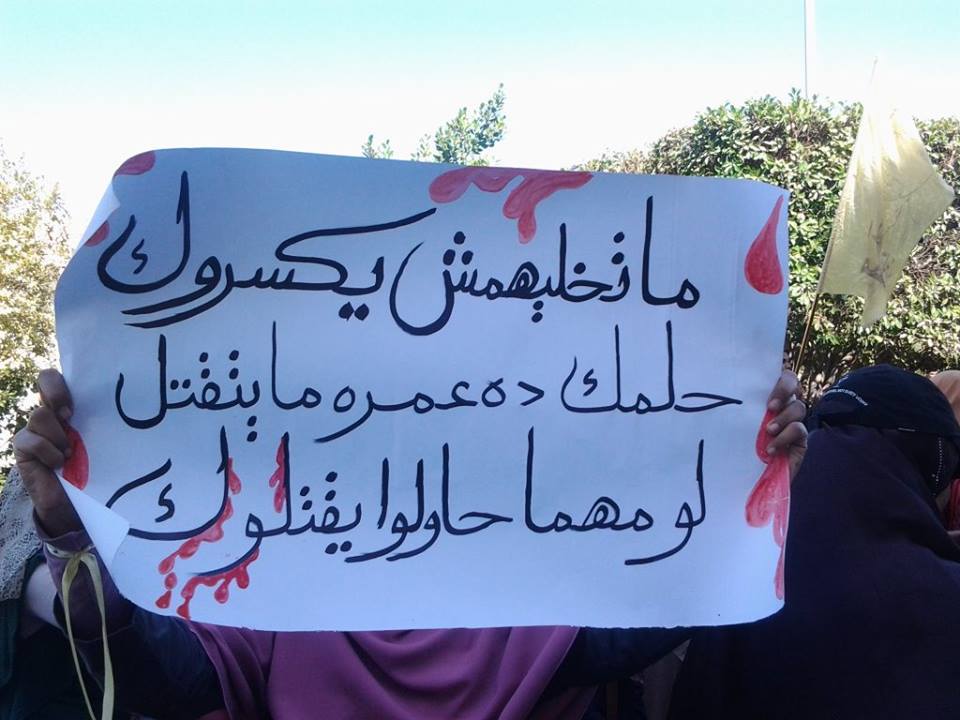 ماتخليهمش يكسروك
حلمك ده عمره ما يتقتل
لو مهما حاولوا يقتلوك